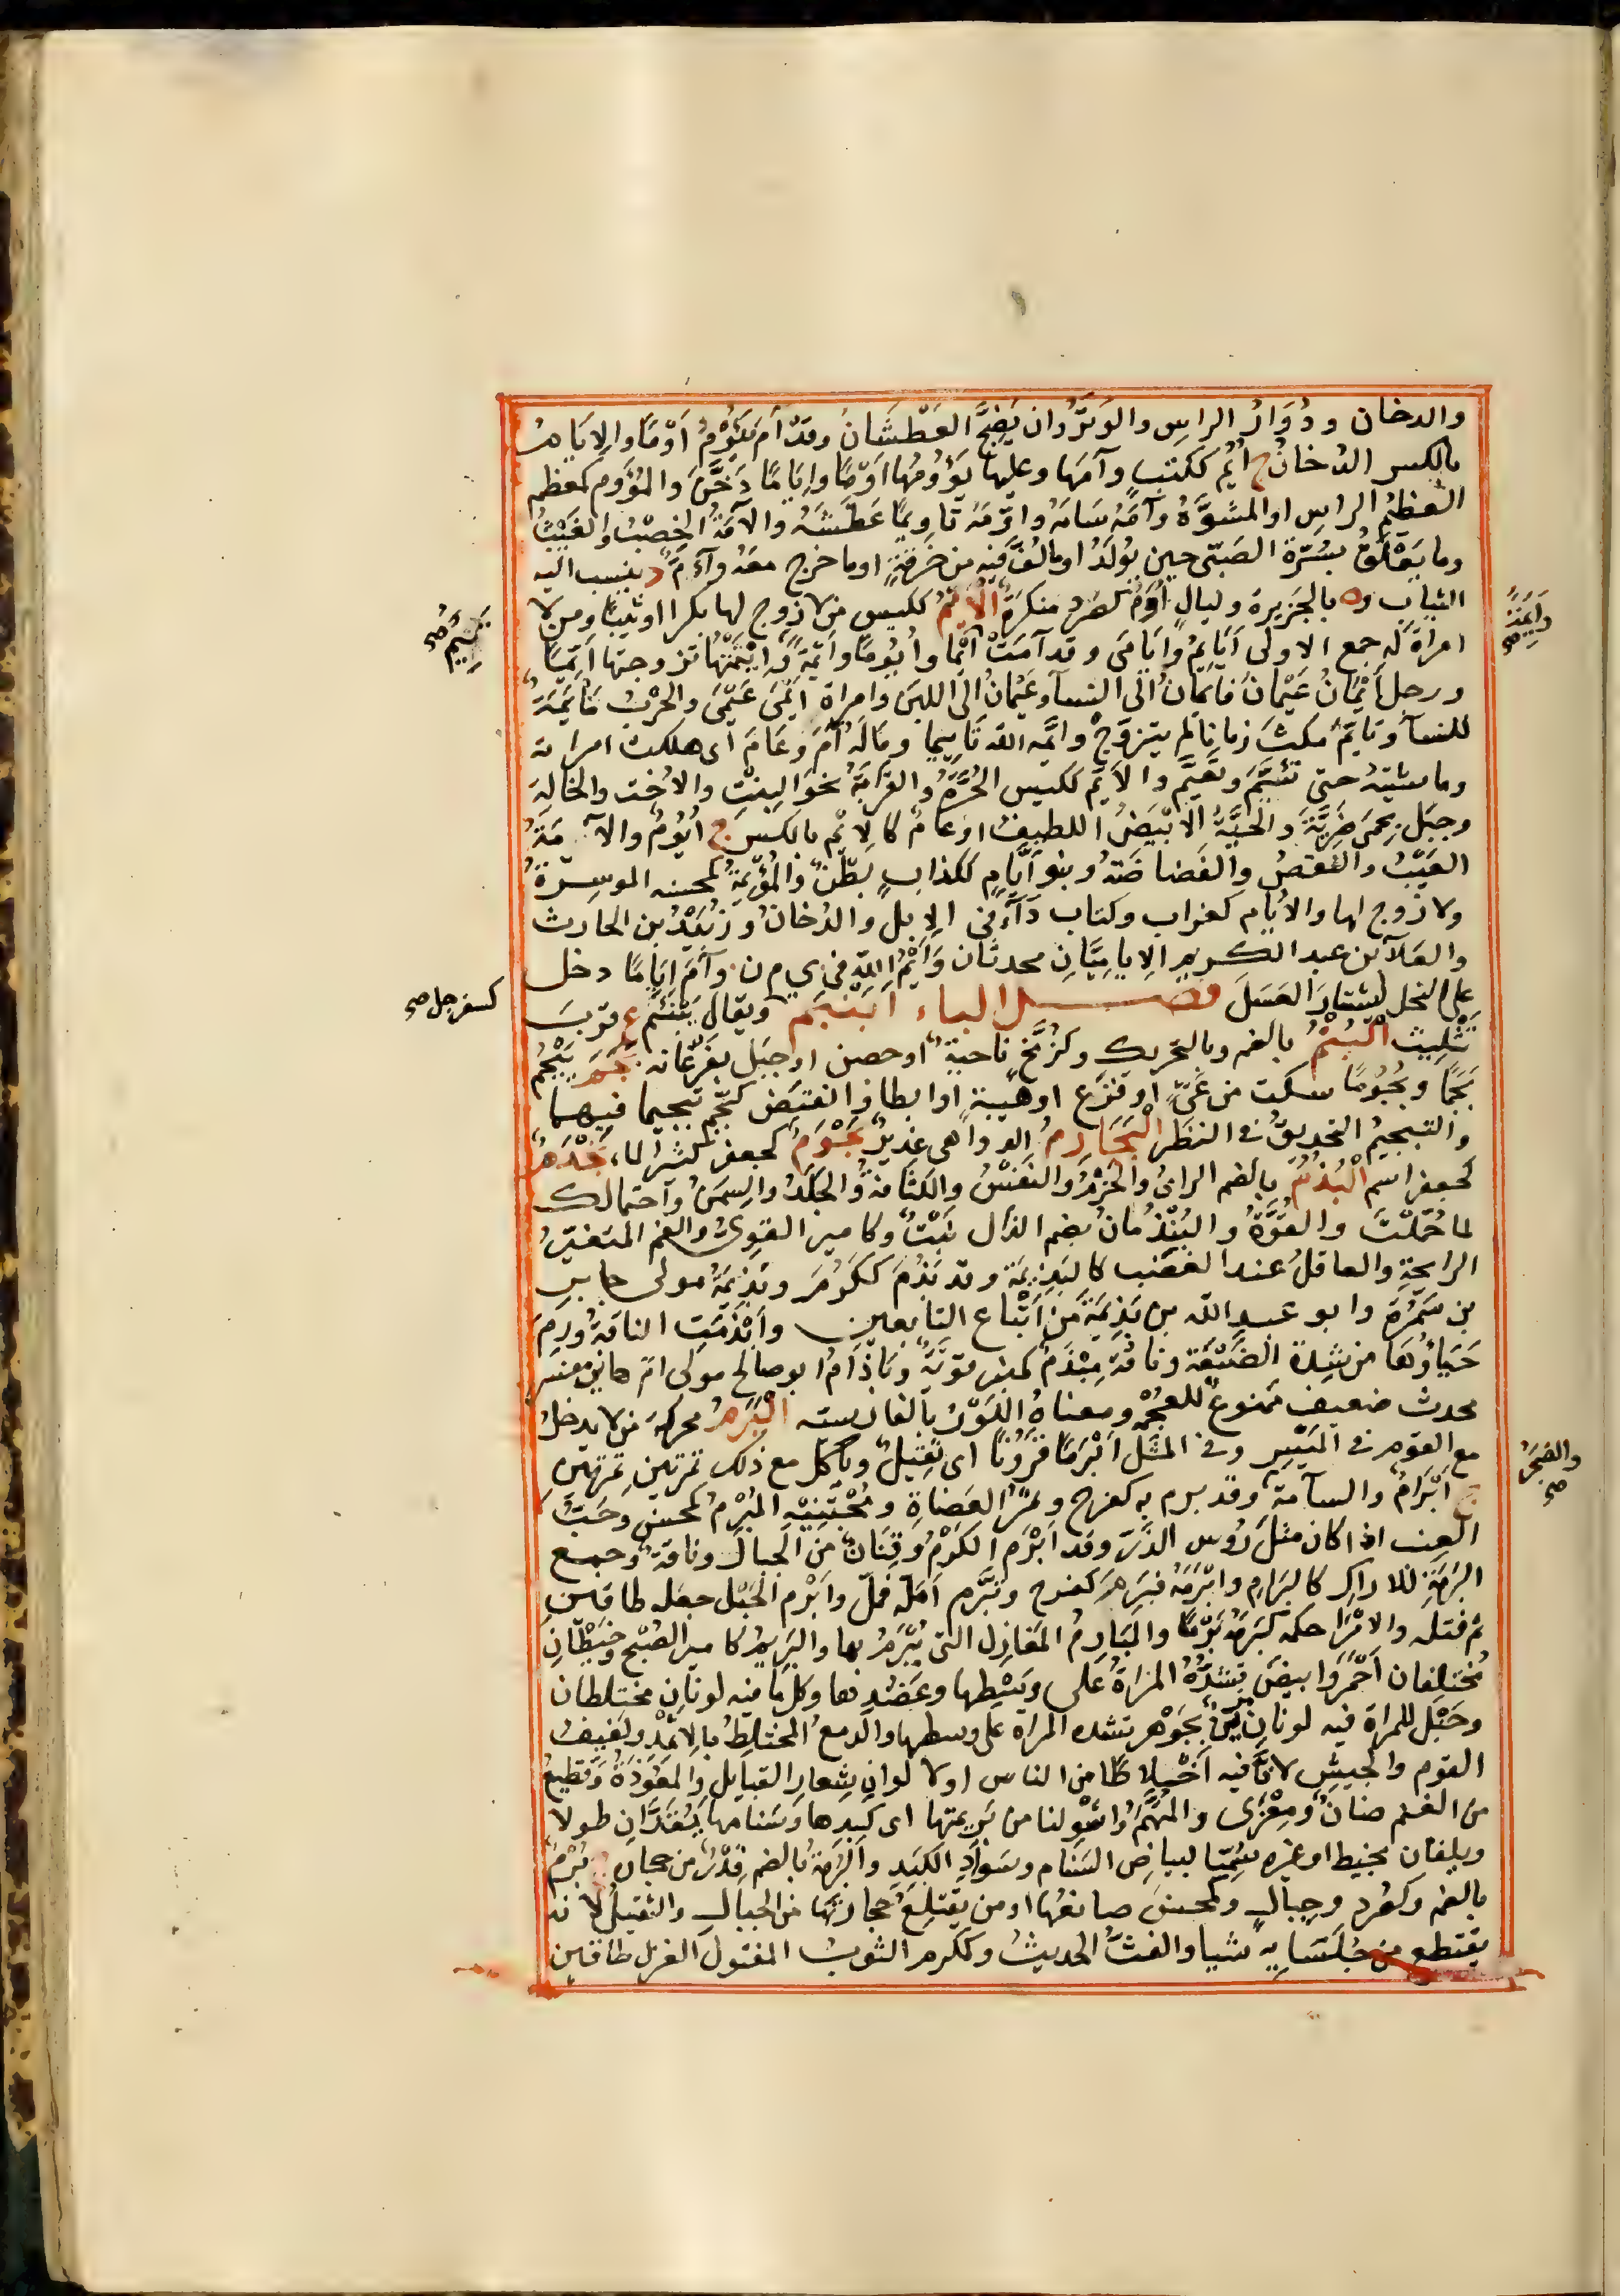 والدخان ودُوَارُ الراسِ والوَتَرُ وان يَضِجَّ العَطْشَانُ وقد آمَ يَؤُومُ اَوْمًا والاِيَامُ
بالكسر الدُخانُ ج اُيُمٌ ككتبٍ وآمَها وعليها يَؤُومُها اَوْمًا واِيَامًا دَخَّنَ والمُؤَوَّم كمعظم
العظيم الراسِ او المشَوَّهُ وآمَهُ سَامَهُ واَوَّمَهُ تَاوِيمًا عَطَّشَهُ والآمَةُ الخِصْبُ والعَيْبُ
وما يَعْلَقُ بسُرّةِ الصَبّى حين يُولَدُ او ما لُفَّ فيه من خِرقَةٍ او ما خرج معَهُ وآءَمُ د ينسب اليه
الثيابِ وه بالجَزيرة وليالٍ اُوَمٌ كصُرَدٍ منكرةٌ الاَيِّمُ ككيس من لا زوج لها بكرا او ثيبًا ومن لا
امراة له جمع الاولى اَيَايِمُ واَيَامَى وقد آمَتْ اَيْمًا واُيُومًا واَيْمَةً واَيَّمْتُها تزوجتها اَيِّمًا
ورجل اَيْمَانُ عَيْمَانُ فاَيْمَانُ الى النسآ وعَيْمَانُ الى اللبَن وامراة اَيْمَى عَيْمَى والحَرْبُ مَاْيَمَةٌ
للنسآ وتَايَّمَ مكثَ زمانا لم يتزوّجْ واَيَّمه الله تَايِيما وما لَه آمَ وعَامَ اى هلكت امراته
وماشيتهُ حتى تَئِيمَ ويَعِيمَ والاَيِّمُ ككيس الحُرَّةُ والقرَابَةُ نحوَ البِنْتِ والاُخْت والخالة
وجبَل بِحِمَى ضَرِيَّةَ والحَيَّةُ الاَبْيَضُ اللطيفُ او عامٌّ كالاِيْم بالكسر ج اُيُومٌ والآمَةُ
العَيْبُ والنَقصُ والغَضاضَةُ وبنو اَيَّامٍ ككذابٍ بَطْنٌ والمُؤْيِمَةُ كمحسنه الموسِرةُ
ولا زوج لها والاُيَامِ كغرابٍ وكتاب دآءٌ فى الابل والدُخانُ وزُبَيْدُ بن الحارث
والعَلآ بن عبد الكريم الاِيامِيَّانِ محدثان واَيْمُ اللّٰهِ فى ى م ن وآمَ اِيَامًا دخل
على النحل ليَشْتارَ العَسَلَ فصل الباء اَبَنْبَمُ ويقال يَبَنْبَم ع قربَ
تَثْلِيث البُتْمُ بالضم وبالتحريك وكزُمَّحٍ ناحيةٌ او حصن او جبَل بفَرْغانه بَجَمَ يَبْجُمُ
بَجْمًا وبُجُومًا سكت من عَىٍّ او فزَعٍ او هَيبةٍ او ابطا وانقبَض كبَجَّم تبجيما فيهما
والتبجيمُ التحديقُ فى النظَر البَجَارِمُ الدواهى غديرٌ بَحْوَمٌ كجعفر كثير الماء بَخْدَمُ
كجعفر اسم البُذْمُ بالضم الراىُ والحَزْمُ والنَفْسُ والكثافةُ والجَلَدُ والسِمَنُ واحتمالك
لما حُمِّلْتَ والقُوَّةُ والبَيْذُمانُ بضم الذال نَبْتٌ وكامير القوِىُّ والفم المتغيّر
الرايحةِ والعاقلُ عند الغضب كالبَذِيمَة وقد بَذُمَ ككَرُمَ وبَذِيمَةُ مولى جابِر
بن سَمُرة وابو عبد اللّٰه بن بَذِيمَةَ من اَتْباع التابعين واَبْذَمَتِ الناقةُ ورِمَ
حَيَاؤُها من شِدّةِ الضَبْعَة وناقةٌ مِبْذَمٌ كمنبر قوِيَّةٌ وبَاذامُ ابو صالح مولى اُمِّ هانئ مفسر
محدث ضعيف ممنوع للعُجْمَةِ ومعناهُ اللَوْزُ بالفارسيه البَرَمُ محركةً من لا يدخلُ
مع القوم فى المَيْسِر وفى المثَل اَبْرَمًا قَرُونًا اى ثَقِيلٌ وياكل مع ذلك تمرتين تمرتين
ج اَبْرَامٌ والسآمةُ وقد برم به كفرح وثَمَرُ العِضَاهِ ومُجْتَنِيهِ المُبْرِمُ كمحسنٍ وحَبُّ
العنب اذا كان مثل رُوُسِ الذَّرِّ وقد اَبْرَم الكَرْمُ وقِنَانٌ من الجبال وناقةٌ وجمع
البَرَمَةِ للاراكِ كالبَرام واَبْرَمَهُ فبَرِمَ كفرح وتبَرَّم اَمَلَّه فمَلَّ واَبْرَم الحَبْل جعله طاقينِ
ثم فتله والامرَ احكمه كبَرَمَهُ بَرْمًا والمَبَارِمُ المَغازِل التى يُبْرَمُ بها والبَرِيمُ كامير الصُبْح وخَيْطانِ
مُختلِفان اَحْمَرُ وابيضُ تشدُّهُ المراةُ على وَسْطِها وعَضُدِها وكل ما فيه لونانِ مختلطان
وحَبْل للمراة فيه لونانِ مُزَيَّنٌ بجَوْهرٍ تشده المراة على وسطها والدمعُ المختلِطُ بالاِثْمِدْ ولفيفُ
القوم والجيش لانَّ فيه اَخْلاطًا من الناس او لالوانِ شِعارِ القبايل والمَعُوذَةُ وقطيعٌ
من الغنم ضانٌ ومِعْزَى والمُتَّهَمُ واشْوِ لنا من بَرِيمَتها اى كبِدها وسَنامها يُقَدَّانِ طولا
ويلفان بخيط او غيره سُمِّيا لبياضِ السَنام وسَوادِ الكَبِدِ والبُرْمَةُ بالضم قِدْرٌ من حجارة ج بُرْمٌ
بالضم وكصُرد وجِبالٍ وكمحسنٍ صانعُها او من يَقْتلِعُ حجارتَها من الجبالِ والثقيلُ لانه
يقتطع من جُلَسَايِهِ شيا والغثُّ الحديثُ وكمكرم الثوبُ المفتول الغزل طاقين
والضجَرُ صح
كسفرجل صح